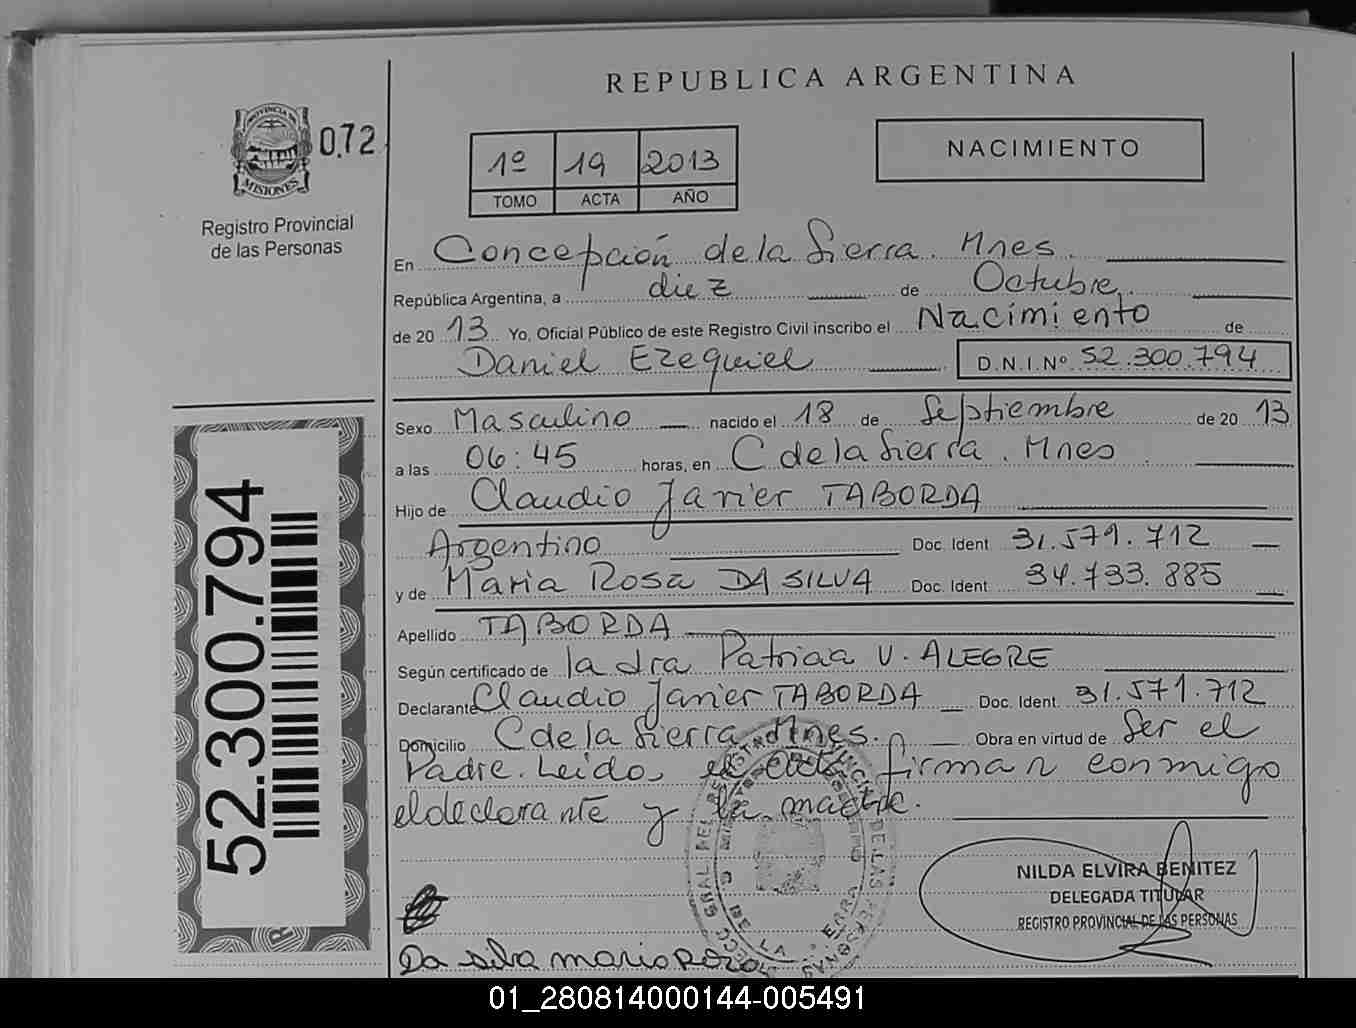 REPUBLICA ARGENTINA
PROVINCIA DE
MISIONES
072
Registro Provincial
de las Personas
1º 19 2013
TOMO ACTA AÑO
NACIMIENTO
En Concepción de la Sierra. Mnes.
República Argentina, a diez de Octubre
de 20 13 Yo, Oficial Público de este Registro Civil inscribo el Nacimiento de
Daniel Ezequiel D.N.I.Nº 52.300.794
Sexo Masculino nacido el 18 de Septiembre de 20 13
a las 06:45 horas, en C de la Sierra. Mnes
Hijo de Claudio Javier TABORDA
Argentino Doc. Ident 31.571.712
y de Maria Rosa DA SILVA Doc. Ident 34.733.885
Apellido TABORDA
Según certificado de la dra Patricia V. ALEGRE
Declarante Claudio Javier TABORDA Doc. Ident. 31.571.712
Domicilio C de la Sierra Mnes. Obra en virtud de Ser el
Padre. Leido el acta firman conmigo
el declarante y la madre.
52.300.794
NILDA ELVIRA BENITEZ
DELEGADA TITULAR
REGISTRO PROVINCIAL DE LAS PERSONAS
Da silva maria rosa
01_280814000144-005491